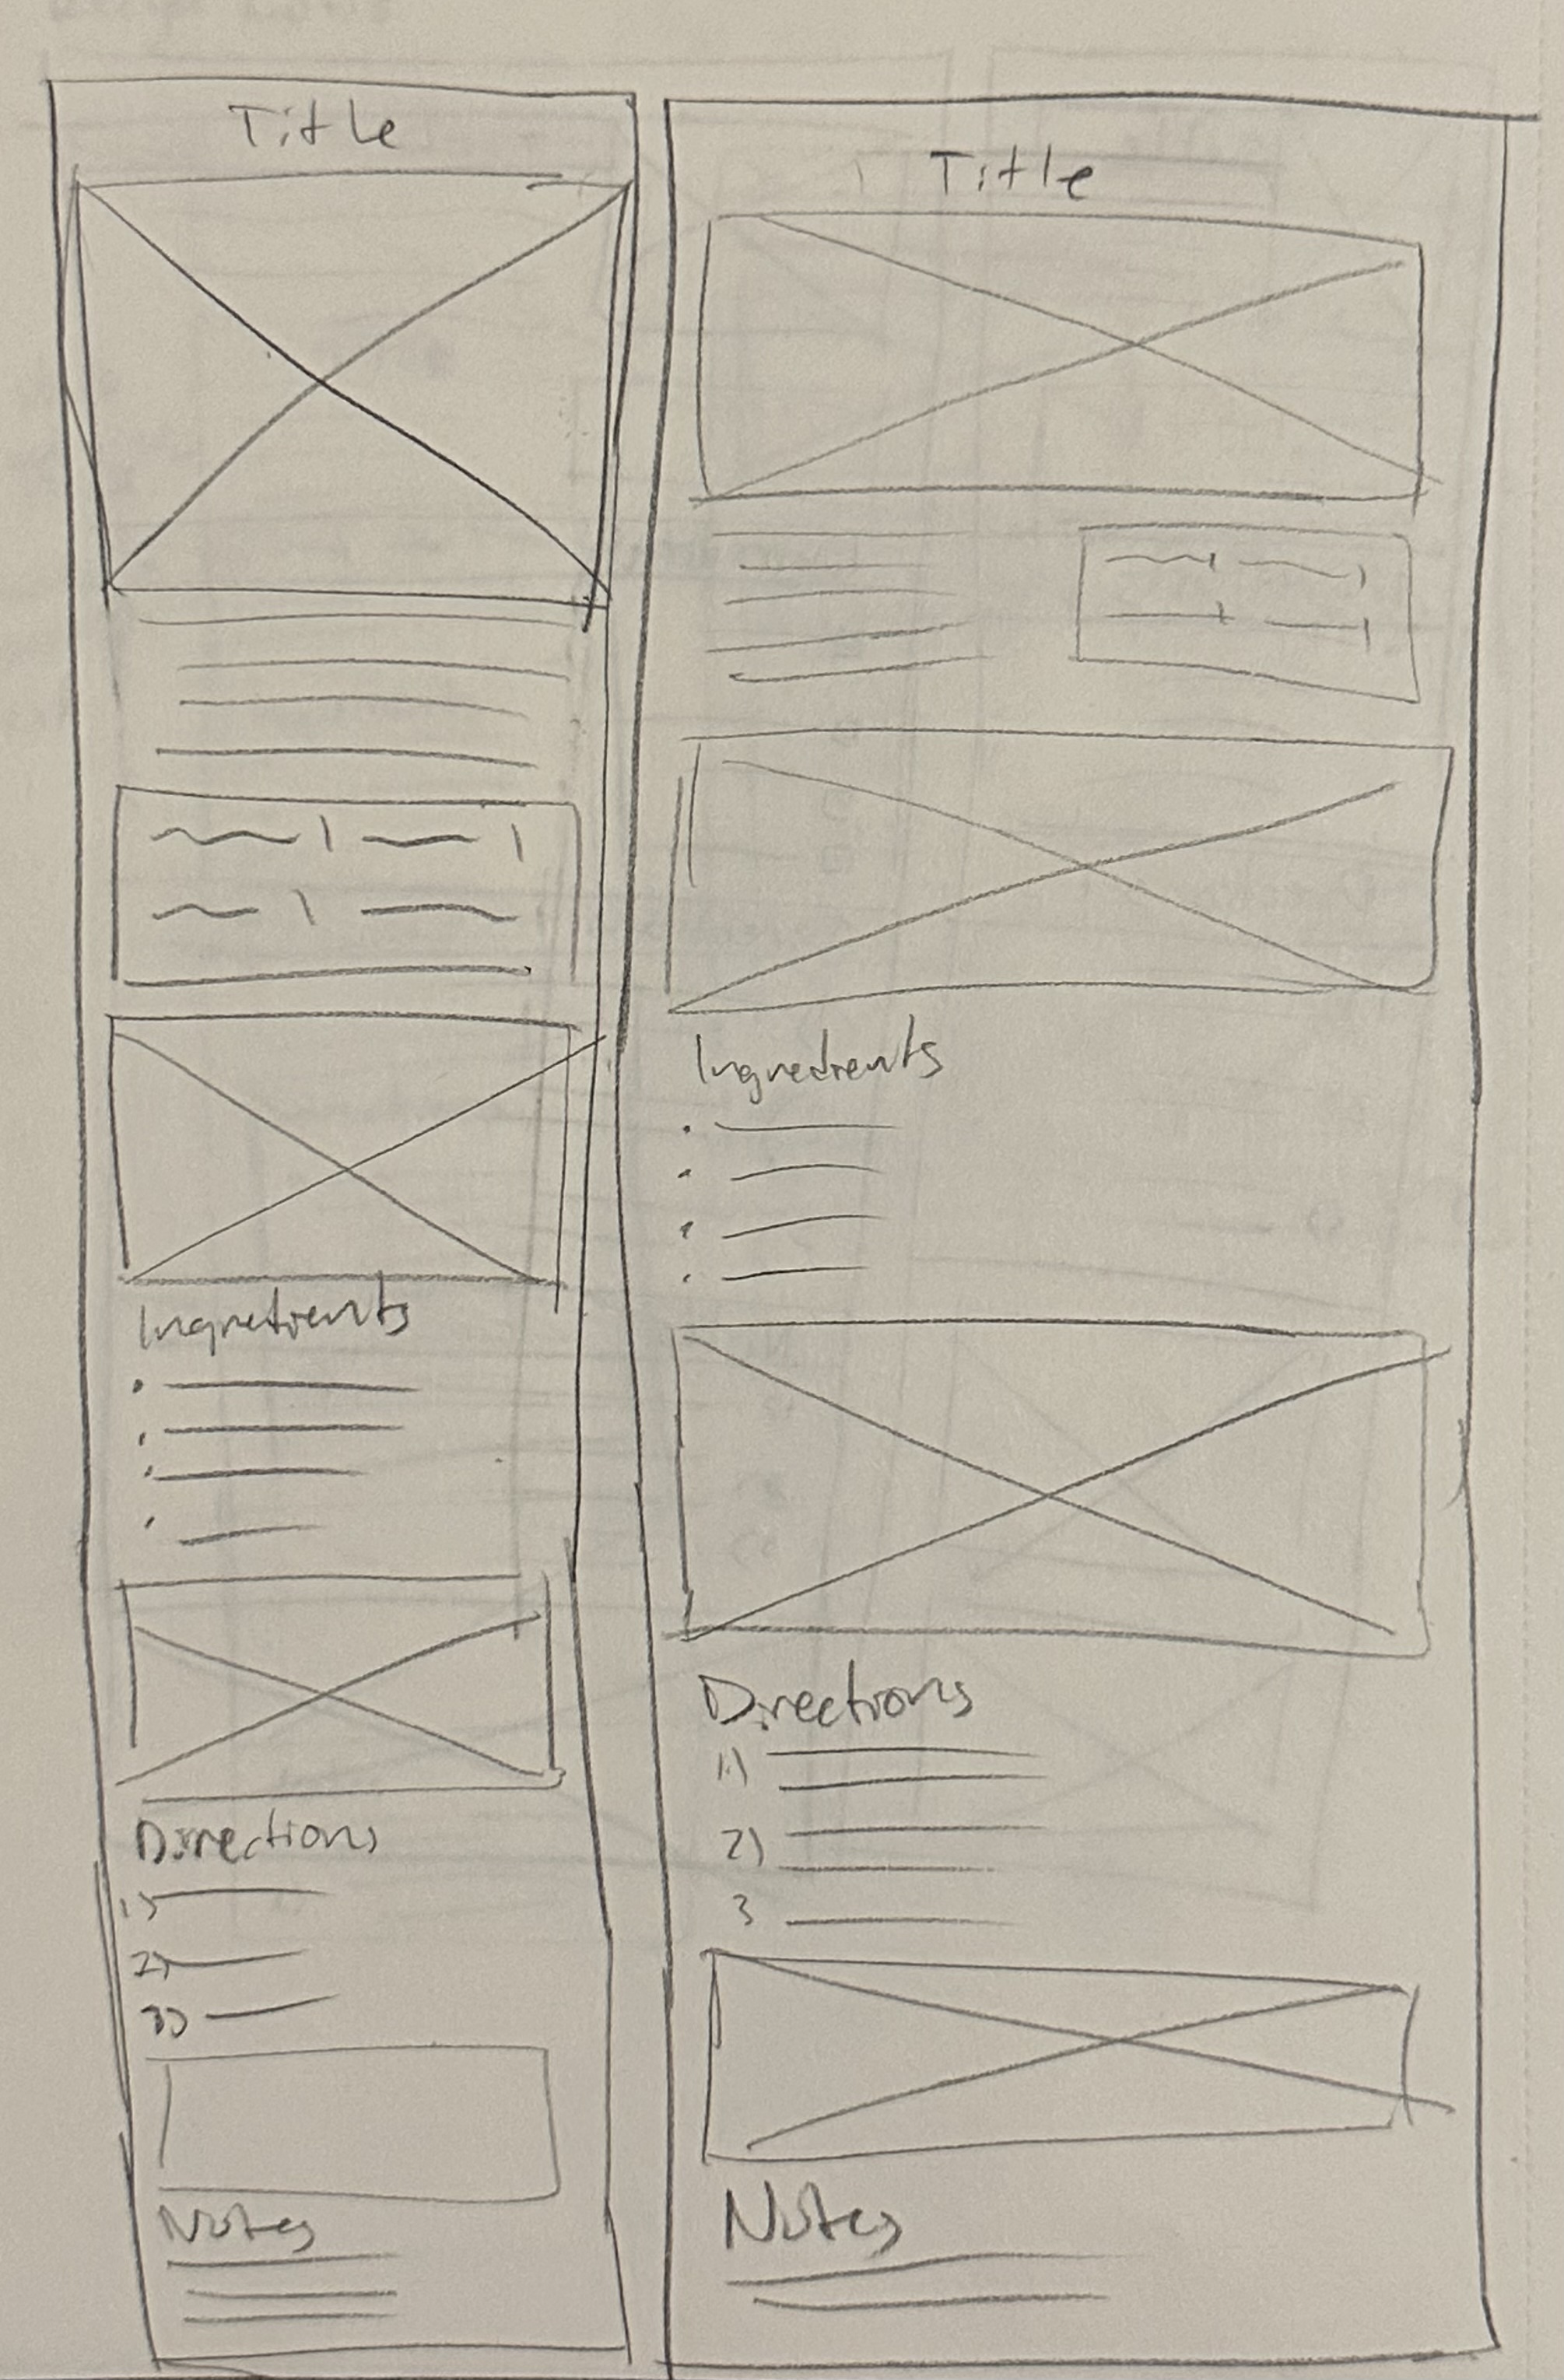 Title
Ingredients
Directions
1)
2)
3)
Notes
Title
Ingredients
Directions
1)
2)
3
Notes